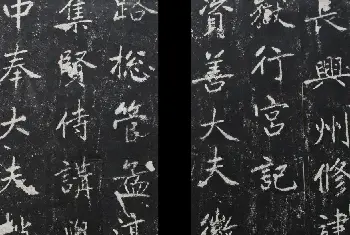 長興州修建
嶽行宮記
資善大夫徽
路総管孟淳
集賢侍講
中奉大夫